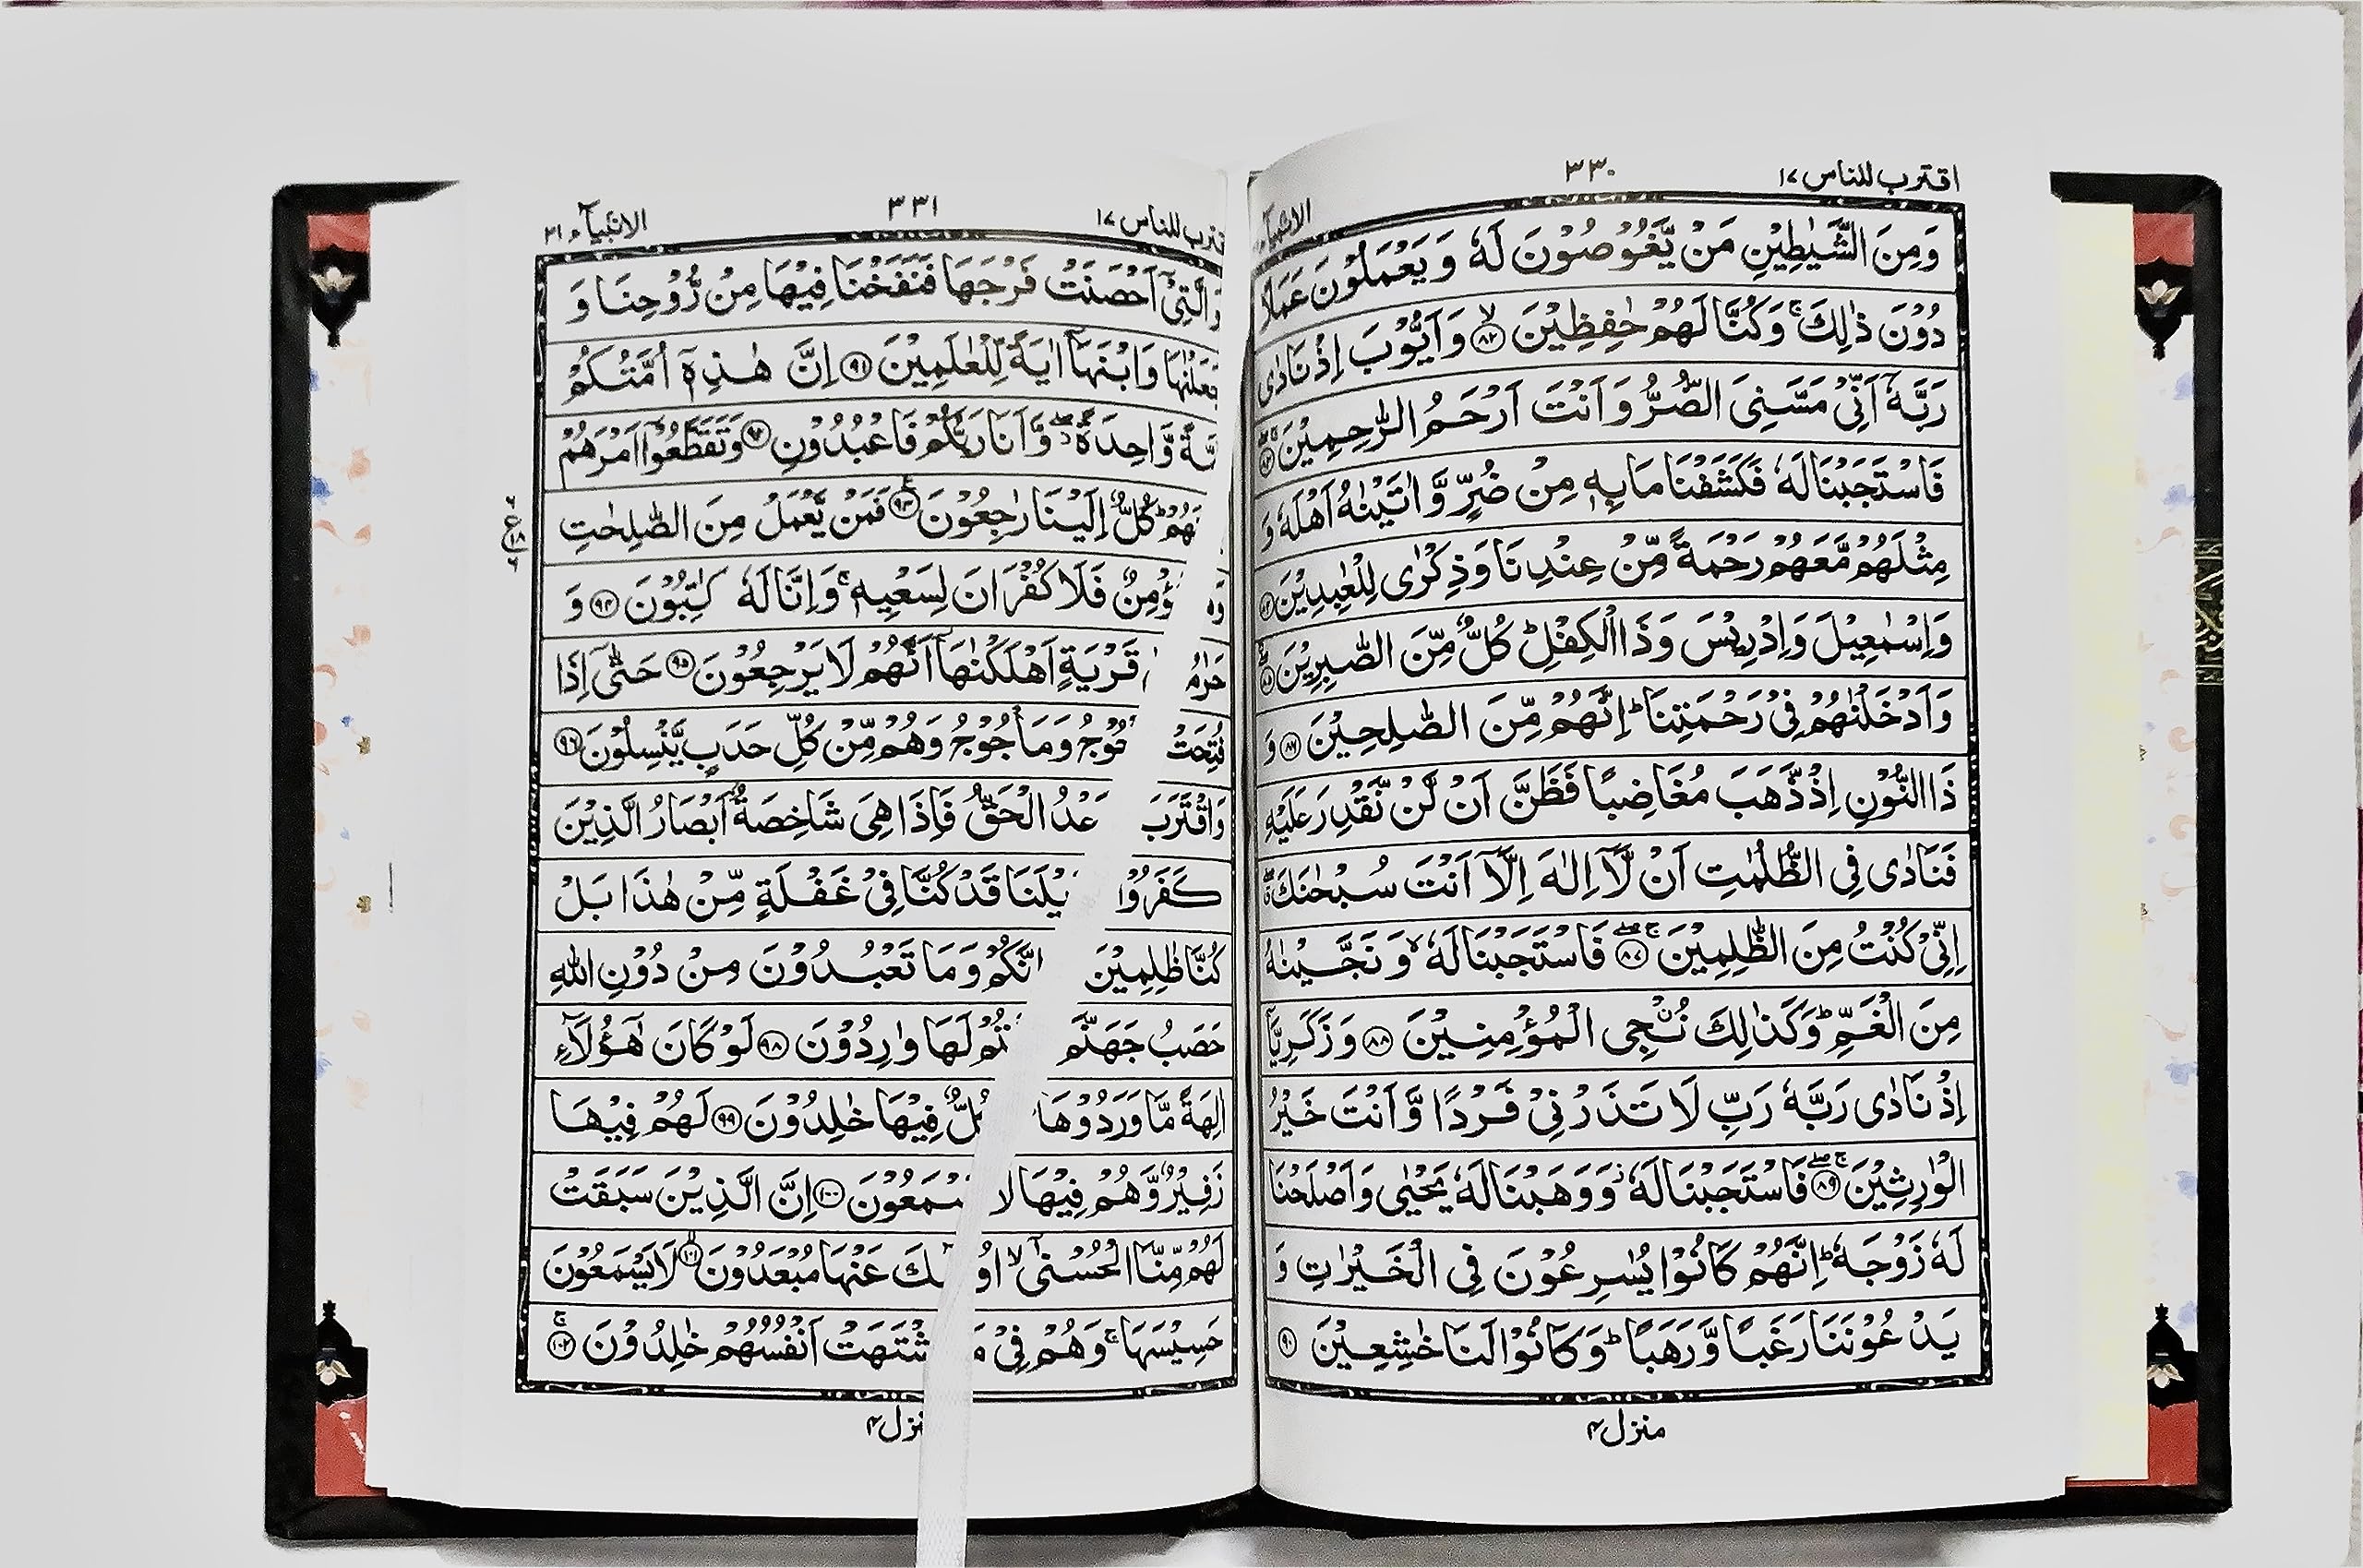 اقترب للناس ١٧
٣٣٠
الانبيآء
وَمِنَ الشَّيٰطِيْنِ مَنْ يَّغُوْصُوْنَ لَهٗ وَيَعْمَلُوْنَ عَمَلًا
دُوْنَ ذٰلِكَ ۚ وَكُنَّا لَهُمْ حٰفِظِيْنَ ۙ‏﴿۸۲﴾ وَاَيُّوْبَ اِذْ نَادٰى
رَبَّهٗۤ اَنِّىْ مَسَّنِىَ الضُّرُّ وَاَنْتَ اَرْحَمُ الرّٰحِمِيْنَ ﴿۸۳﴾
فَاسْتَجَبْنَا لَهٗ فَكَشَفْنَا مَا بِهٖ مِنْ ضُرٍّ وَّاٰتَيْنٰهُ اَهْلَهٗ وَ
مِثْلَهُمْ مَّعَهُمْ رَحْمَةً مِّنْ عِنْدِنَا وَذِكْرٰى لِلْعٰبِدِيْنَ ﴿۸۴﴾
وَاِسْمٰعِيْلَ وَاِدْرِيْسَ وَذَا الْكِفْلِ ؕ كُلٌّ مِّنَ الصّٰبِرِيْنَ ﴿۸۵﴾
وَاَدْخَلْنٰهُمْ فِىْ رَحْمَتِنَا ؕ اِنَّهُمْ مِّنَ الصّٰلِحِيْنَ ﴿۸۶﴾ وَ
ذَا النُّوْنِ اِذْ ذَّهَبَ مُغَاضِبًا فَظَنَّ اَنْ لَّنْ نَّقْدِرَ عَلَيْهِ
فَنَادٰى فِى الظُّلُمٰتِ اَنْ لَّاۤ اِلٰهَ اِلَّاۤ اَنْتَ سُبْحٰنَكَ ۖ
اِنِّىْ كُنْتُ مِنَ الظّٰلِمِيْنَ ﴿۸۷﴾ فَاسْتَجَبْنَا لَهٗ ۙ وَنَجَّيْنٰهُ
مِنَ الْغَمِّ ؕ وَكَذٰلِكَ نُـنْجِى الْمُؤْمِنِيْنَ ﴿۸۸﴾ وَزَكَرِيَّاۤ
اِذْ نَادٰى رَبَّهٗ رَبِّ لَا تَذَرْنِىْ فَرْدًا وَّاَنْتَ خَيْرُ
الْوٰرِثِيْنَ ﴿۸۹﴾ فَاسْتَجَبْنَا لَهٗ ۫ وَوَهَبْنَا لَهٗ يَحْيٰى وَاَصْلَحْنَا
لَهٗ زَوْجَهٗ ؕ اِنَّهُمْ كَانُوْا يُسٰرِعُوْنَ فِى الْخَيْرٰتِ وَ
يَدْعُوْنَنَا رَغَبًا وَّرَهَبًا ؕ وَكَانُوْا لَنَا خٰشِعِيْنَ ﴿۹۰﴾
منزل ۴
ترب للناس ١٧
٣٣١
الانبيآء ٢١
وَالَّتِىْۤ اَحْصَنَتْ فَرْجَهَا فَنَفَخْنَا فِيْهَا مِنْ رُّوْحِنَا وَ
جَعَلْنٰهَا وَابْنَهَاۤ اٰيَةً لِّلْعٰلَمِيْنَ ﴿۹۱﴾ اِنَّ هٰذِهٖۤ اُمَّتُكُمْ
وَّاحِدَةً ۖ وَّاَنَا رَبُّكُمْ فَاعْبُدُوْنِ ﴿۹۲﴾ وَتَقَطَّعُوْۤا اَمْرَهُمْ
كُلٌّ اِلَيْنَا رٰجِعُوْنَ ﴿۹۳﴾ فَمَنْ يَّعْمَلْ مِنَ الصّٰلِحٰتِ
فَلَا كُفْرَانَ لِسَعْيِهٖ ۚ وَاِنَّا لَهٗ كٰتِبُوْنَ ﴿۹۴﴾ وَ
قَرْيَةٍ اَهْلَكْنٰهَاۤ اَنَّهُمْ لَا يَرْجِعُوْنَ ﴿۹۵﴾ حَتّٰٓى اِذَا
فُتِحَتْ وَمَاْجُوْجُ وَهُمْ مِّنْ كُلِّ حَدَبٍ يَّنْسِلُوْنَ ﴿۹۶﴾
وَاقْتَرَبَ الْحَقُّ فَاِذَا هِىَ شَاخِصَةٌ اَبْصَارُ الَّذِيْنَ
كَفَرُوْا ؕ يٰلَنَا قَدْ كُنَّا فِىْ غَفْلَةٍ مِّنْ هٰذَا بَلْ
كُنَّا ظٰلِمِيْنَ اِنَّكُمْ وَمَا تَعْبُدُوْنَ مِنْ دُوْنِ اللّٰهِ
حَصَبُ جَهَنَّمَ لَهَا وٰرِدُوْنَ ﴿۹۸﴾ لَوْ كَانَ هٰۤؤُلَآءِ
اٰلِهَةً مَّا وَرَدُوْهَا كُلٌّ فِيْهَا خٰلِدُوْنَ ﴿۹۹﴾ لَهُمْ فِيْهَا
زَفِيْرٌ وَّهُمْ فِيْهَا لَا ﴿۱۰۰﴾ اِنَّ الَّذِيْنَ سَبَقَتْ
لَهُمْ مِّنَّا الْحُسْنٰٓى ۙ عَنْهَا مُبْعَدُوْنَ ﴿۱۰۱﴾ لَا يَسْمَعُوْنَ
حَسِيْسَهَا ۚ وَهُمْ فِىْ اشْتَهَتْ اَنْفُسُهُمْ خٰلِدُوْنَ ﴿۱۰۲﴾